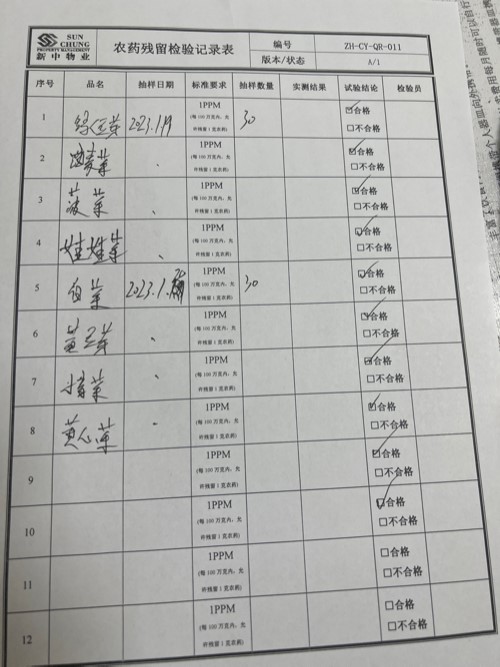 SUN CHUNG
PROPERTY MANAGEMENT
新中物业
农药残留检验记录表
编号 ZH-CY-QR-011
版本/状态 A/1
序号 品名 抽样日期 标准要求 抽样数量 实测结果 试验结论 检验员
1PPM ☑合格
1 2023.1.19 (每100万克内，允许残留1克农药) 30 □不合格
1PPM ☑合格
2 油麦菜 、 (每100万克内，允许残留1克农药) □不合格
1PPM ☑合格
3 菠菜 、 (每100万克内，允许残留1克农药) □不合格
1PPM ☑合格
4 娃娃菜 、 (每100万克内，允许残留1克农药) □不合格
1PPM ☑合格
5 白菜 2023.1.20 (每100万克内，允许残留1克农药) 30 □不合格
1PPM ☑合格
6 、 (每100万克内，允许残留1克农药) □不合格
1PPM ☑合格
7 、 (每100万克内，允许残留1克农药) □不合格
1PPM ☑合格
8 黄心菜 、 (每100万克内，允许残留1克农药) □不合格
1PPM ☑合格
9 (每100万克内，允许残留1克农药) □不合格
1PPM ☑合格
10 (每100万克内，允许残留1克农药) □不合格
1PPM □合格
11 (每100万克内，允许残留1克农药) □不合格
1PPM □合格
12 (每100万克内，允许残留1克农药) □不合格